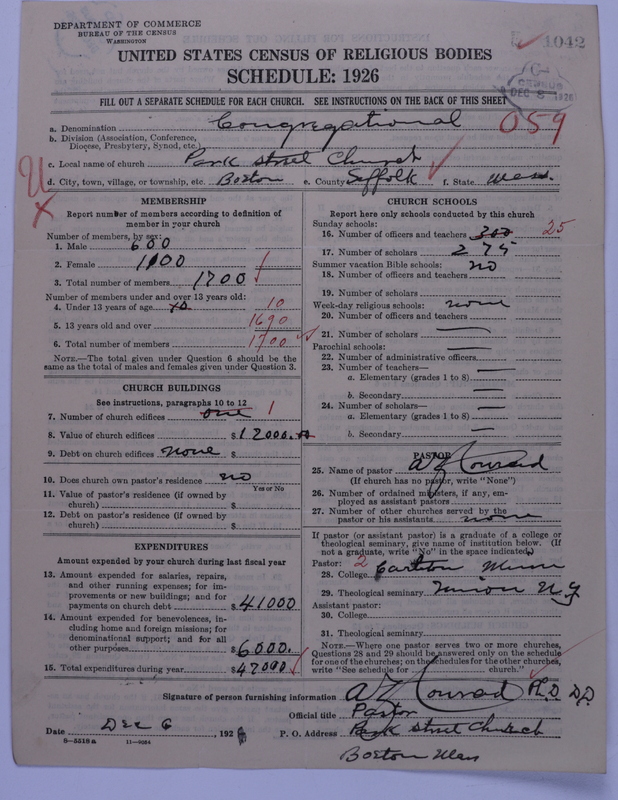 DEPARTMENT OF COMMERCE
BUREAU OF THE CENSUS
WASHINGTON
1042
UNITED STATES CENSUS OF RELIGIOUS BODIES
SCHEDULE: 1926
CENSUS
DEC 8 1926
FILL OUT A SEPARATE SCHEDULE FOR EACH CHURCH. SEE INSTRUCTIONS ON THE BACK OF THIS SHEET
a. Denomination Congregational 059
b. Division (Association, Conference, Diocese, Presbytery, Synod, etc.)
c. Local name of church Park Street Church
d. City, town, village, or township, etc. Boston e. County Suffolk f. State Mass.
MEMBERSHIP
Report number of members according to definition of
member in your church
Number of members, by sex:
1. Male 600
2. Female 1100
3. Total number of members 1700
Number of members under and over 13 years old:
4. Under 13 years of age 10
5. 13 years old and over 1690
6. Total number of members 1700
NOTE.—The total given under Question 6 should be the
same as the total of males and females given under Question 3.
CHURCH BUILDINGS
See instructions, paragraphs 10 to 12
7. Number of church edifices one 1
8. Value of church edifices $
9. Debt on church edifices none $
10. Does church own pastor's residence? no
Yes or No
11. Value of pastor's residence (if owned by
church) $
12. Debt on pastor's residence (if owned by
church) $
EXPENDITURES
Amount expended by your church during last fiscal year
13. Amount expended for salaries, repairs,
and other running expenses; for im-
provements or new buildings; and for
payments on church debt $ 41000
14. Amount expended for benevolences, in-
cluding home and foreign missions; for
denominational support; and for all
other purposes $ 6000.
15. Total expenditures during year $ 47000
CHURCH SCHOOLS
Report here only schools conducted by this church
Sunday schools:
16. Number of officers and teachers 300 25
17. Number of scholars 275
Summer vacation Bible schools: no
18. Number of officers and teachers
19. Number of scholars
Week-day religious schools: none
20. Number of officers and teachers
21. Number of scholars
Parochial schools:
22. Number of administrative officers
23. Number of teachers—
a. Elementary (grades 1 to 8)
b. Secondary
24. Number of scholars—
a. Elementary (grades 1 to 8)
b. Secondary
PASTOR
25. Name of pastor A Z Conrad
(If church has no pastor, write "None")
26. Number of ordained ministers, if any, em-
ployed as assistant pastors
27. Number of other churches served by the
pastor or his assistants none
If pastor (or assistant pastor) is a graduate of a college or
theological seminary, give name of institution below. (If
not a graduate, write "No" in the space indicated.)
Pastor: 2
28. College Carlton Minn
29. Theological seminary Union N Y
Assistant pastor:
30. College
31. Theological seminary
NOTE.—Where one pastor serves two or more churches,
Questions 28 and 29 should be answered only on the schedule
for one of the churches; on the schedules for the other churches,
write "See schedule for church."
Signature of person furnishing information A Z Conrad Ph.D. D.D.
Official title Pastor
Date Dec 6, 1926 P. O. Address Park Street Church
Boston Mass
8—5518a 11—9584